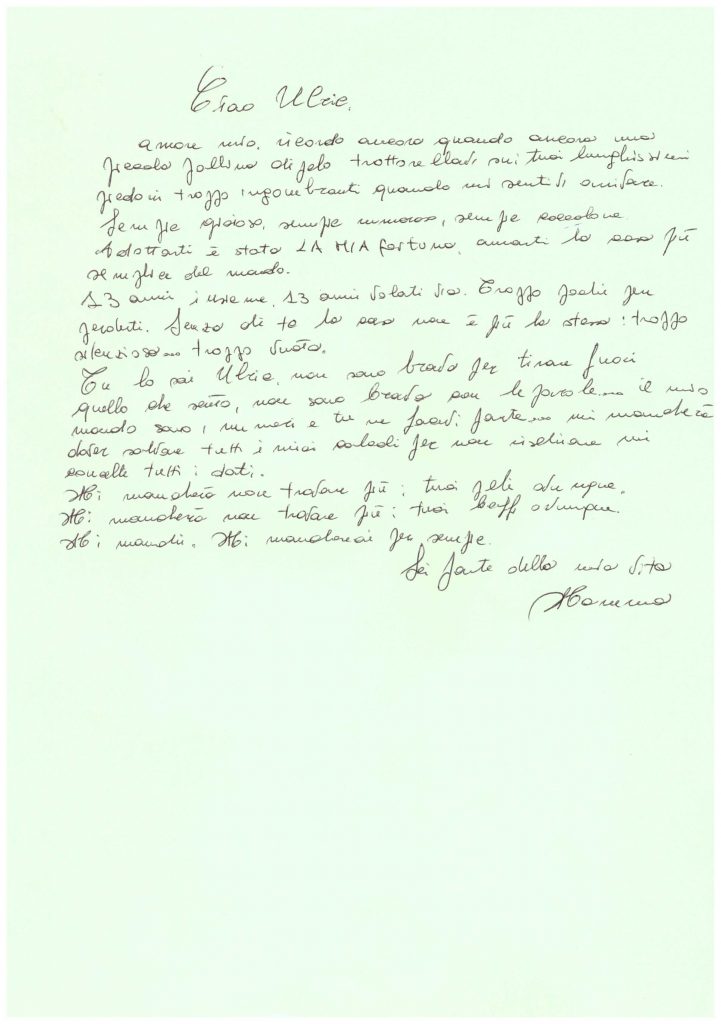 Ciao Ulric.
amore mio, ricordo ancora quando ancora una
piccola pallina di pelo trotterellavi sui tuoi lunghissimi
piedoni troppo ingombranti quando mi sentivi arrivare.
Sempre gioioso, sempre rumoroso, sempre coccolone.
Adottarti è stata LA MIA fortuna, amarti la cosa più
semplice del mondo.
13 anni insieme, 13 anni volati via. Troppo pochi per
perderti. Senza di te la casa non è più la stessa: troppo
silenziosa... troppo vuota.
Tu lo sai Ulric, non sono brava per tirare fuori
quello che sento, non sono brava con le parole... il mio
mondo sono i numeri e tu ne facevi parte... mi mancherà
dover salvare tutti i miei calcoli per non rischiare mi
cancelle tutti i dati.
Mi mancherà non trovare più i tuoi peli ovunque.
Mi mancherà non trovare più i tuoi baffi ovunque.
Mi manchi. Mi mancherai per sempre.
Sei parte della mia vita
Mamma